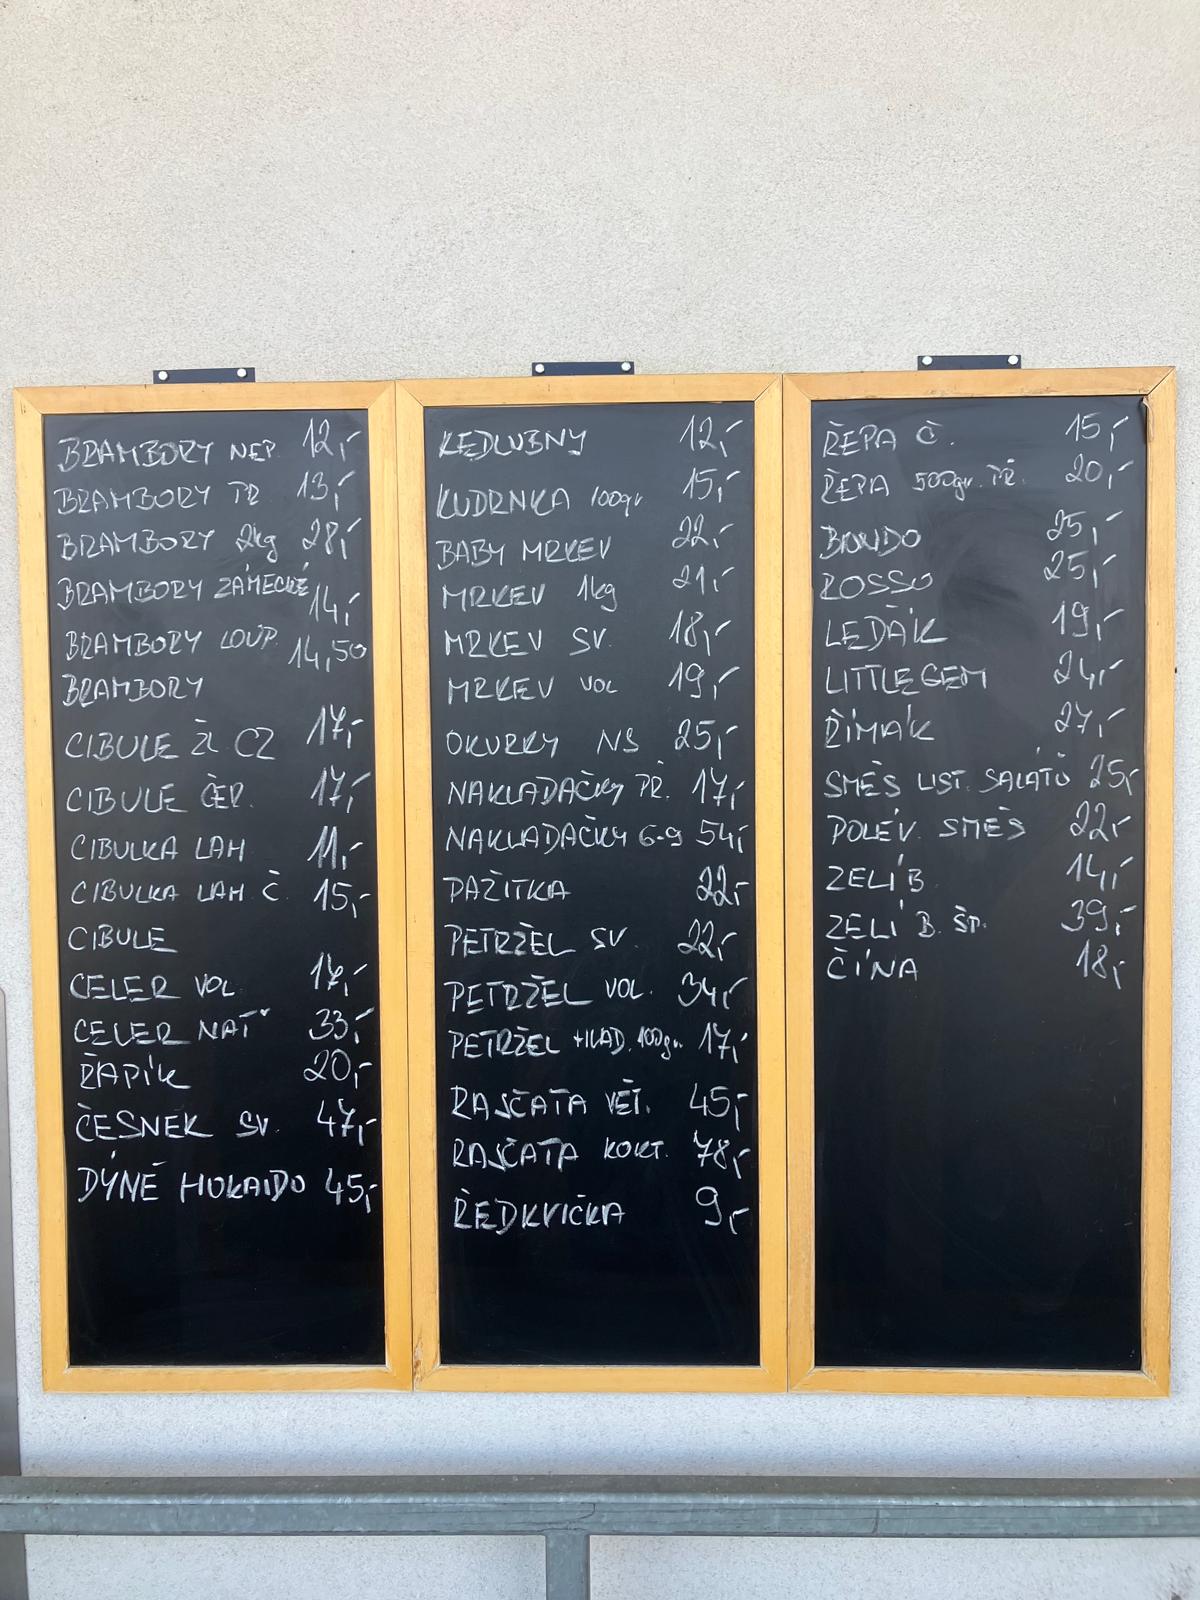 BRAMBORY NEP. 12,-
BRAMBORY TŘ 13,-
BRAMBORY 2kg 28,-
BRAMBORY ZÁMECKÉ 14,-
BRAMBORY LOUP. 14,50
BRAMBORY
CIBULE ŽL CZ 17,-
CIBULE ČER. 17,-
CIBULKA LAH 11,-
CIBULKA LAH Č. 15,-
CIBULE
CELER VOL 17,-
CELER NAŤ 33,-
ŘAPÍK 20,-
ČESNEK SV. 47,-
DÝNĚ HOKAIDO 45,-
KEDLUBNY 12,-
KUDRNKA 100gr 15,-
BABY MRKEV 22,-
MRKEV 1kg 21,-
MRKEV SV. 18,-
MRKEV VOL 19,-
OKURKY NS 25,-
NAKLADAČKY PŘ. 17,-
NAKLADAČKY 6-9 54,-
PAŽITKA 22,-
PETRŽEL SV. 22,-
PETRŽEL VOL. 34,-
PETRŽEL HLAD. 100gr. 17,-
RAJČATA VĚT. 45,-
RAJČATA KOKT. 78,-
ŘEDKVIČKA 9,-
ŘEPA Č. 15,-
ŘEPA 500gr. PŘ. 20,-
BIONDO 25,-
ROSSO 25,-
LEDÁK 19,-
LITTLEGEM 24,-
ŘÍMÁK 27,-
SMĚS LIST. SALÁTŮ 25,-
POLÉV. SMĚS 22,-
ZELÍ B. 14,-
ZELÍ B. ŠP. 39,-
ČÍNA 18,-